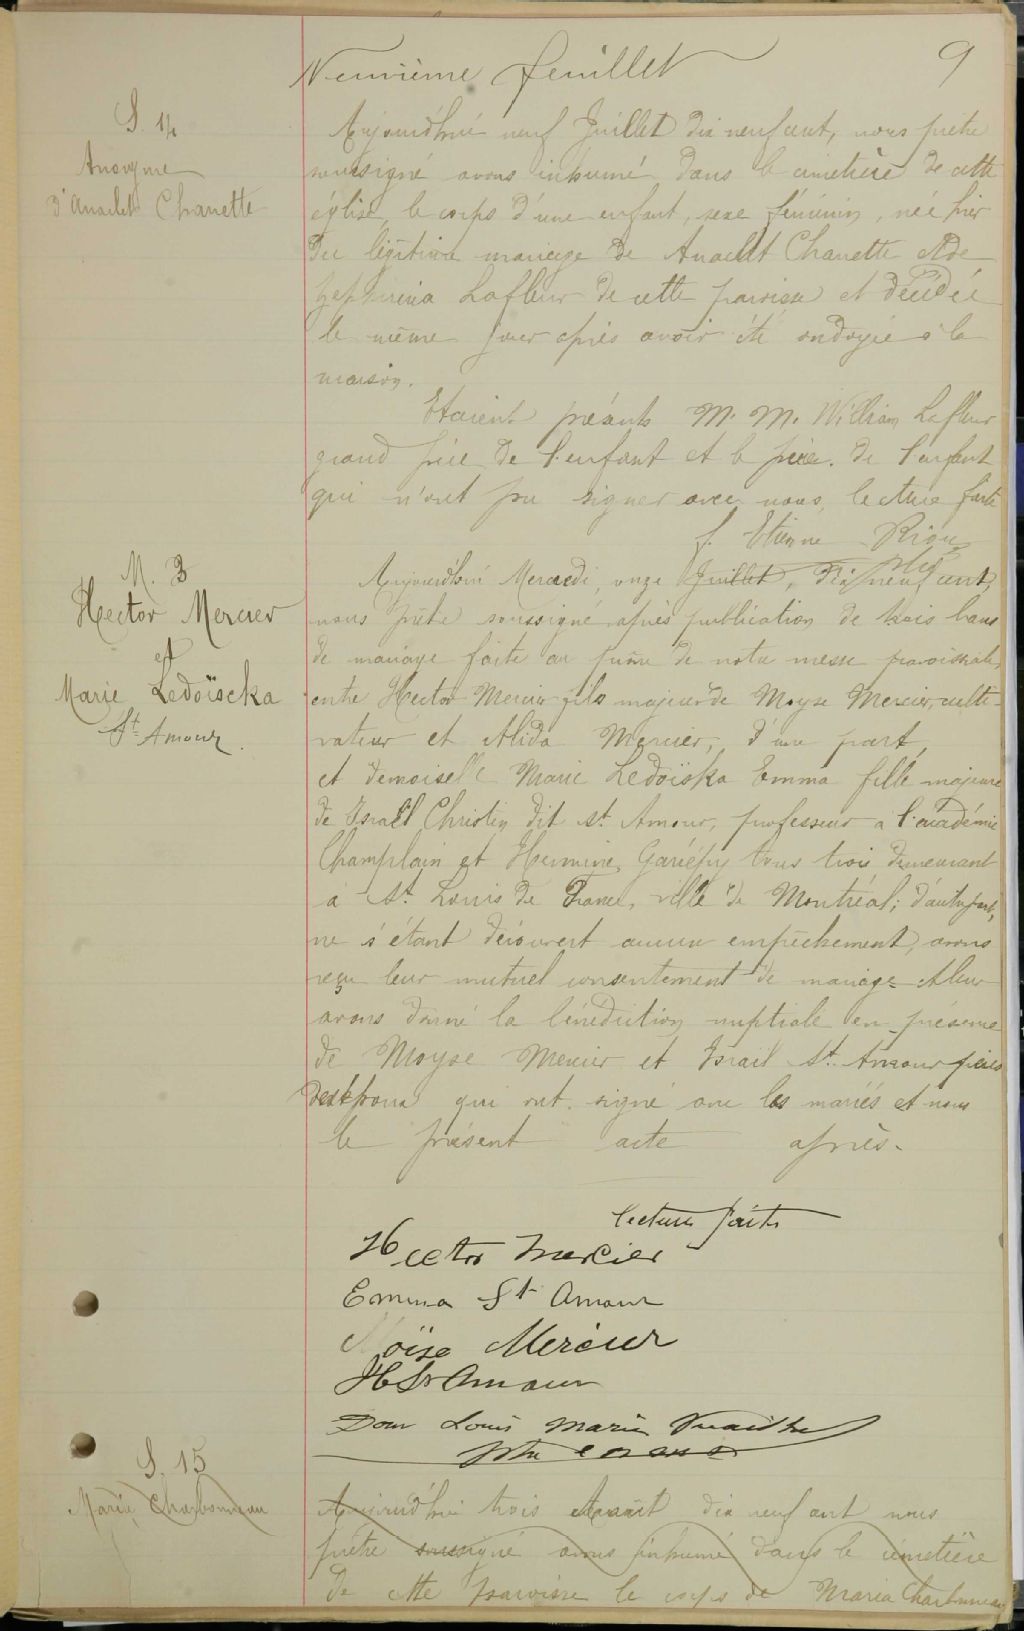 Neuvième feuillet
9
S. 14
Anonyme
d'Anaclet Charette
Aujourd'hui neuf Juillet dix neuf cent, nous prêtre
soussigné avons inhumé dans le cimetière de cette
église, le corps d'une enfant, sexe féminin, née hier
du légitime mariage de Anaclet Charette et de
Zephirina Lafleur de cette paroisse et décédée
le même jour après avoir été ondoyée à la
maison.
Etaient présents M. M. William Lafleur
grand père de l'enfant et le père de l'enfant
qui n'ont pu signer avec nous, lecture faite
f. Etienne Riou
ptre
M. 3
Hector Mercier
et
Marie Ledoïscka
St Amour.
Aujourd'hui Mercredi, onze Juillet, dix neuf cent,
nous prêtre soussigné après publication de trois bans
de mariage faite au prône de notre messe paroissiale,
entre Hector Mercier fils majeur de Moyse Mercier, culti-
vateur et Alida Mercier, d'une part,
et demoiselle Marie Ledoïska Emma fille majeure
de Israël Christin dit St. Amour, professeur a l'académie
Champlain et Hermine Gariépy tous trois demeurant
à St. Louis de France, ville de Montréal; d'autre part,
ne s'étant découvert aucun empêchement, avons
reçu leur mutuel consentement de mariage et leur
avons donné la bénédiction nuptiale en présence
de Moyse Mercier et Israël St. Amour pères
des époux qui ont signé avec les mariés et nous
le présent acte après.
lecture faite
Hector Mercier
Emma St Amour
Moïse Mercier
St Amour
Dom Louis Marie
S. 15
Marie Charbonneau
Aujourd'hui trois Août dix neuf cent nous
prêtre soussigné avons inhumé dans le cimetière
de cette paroisse le corps de Maria Charbonneau